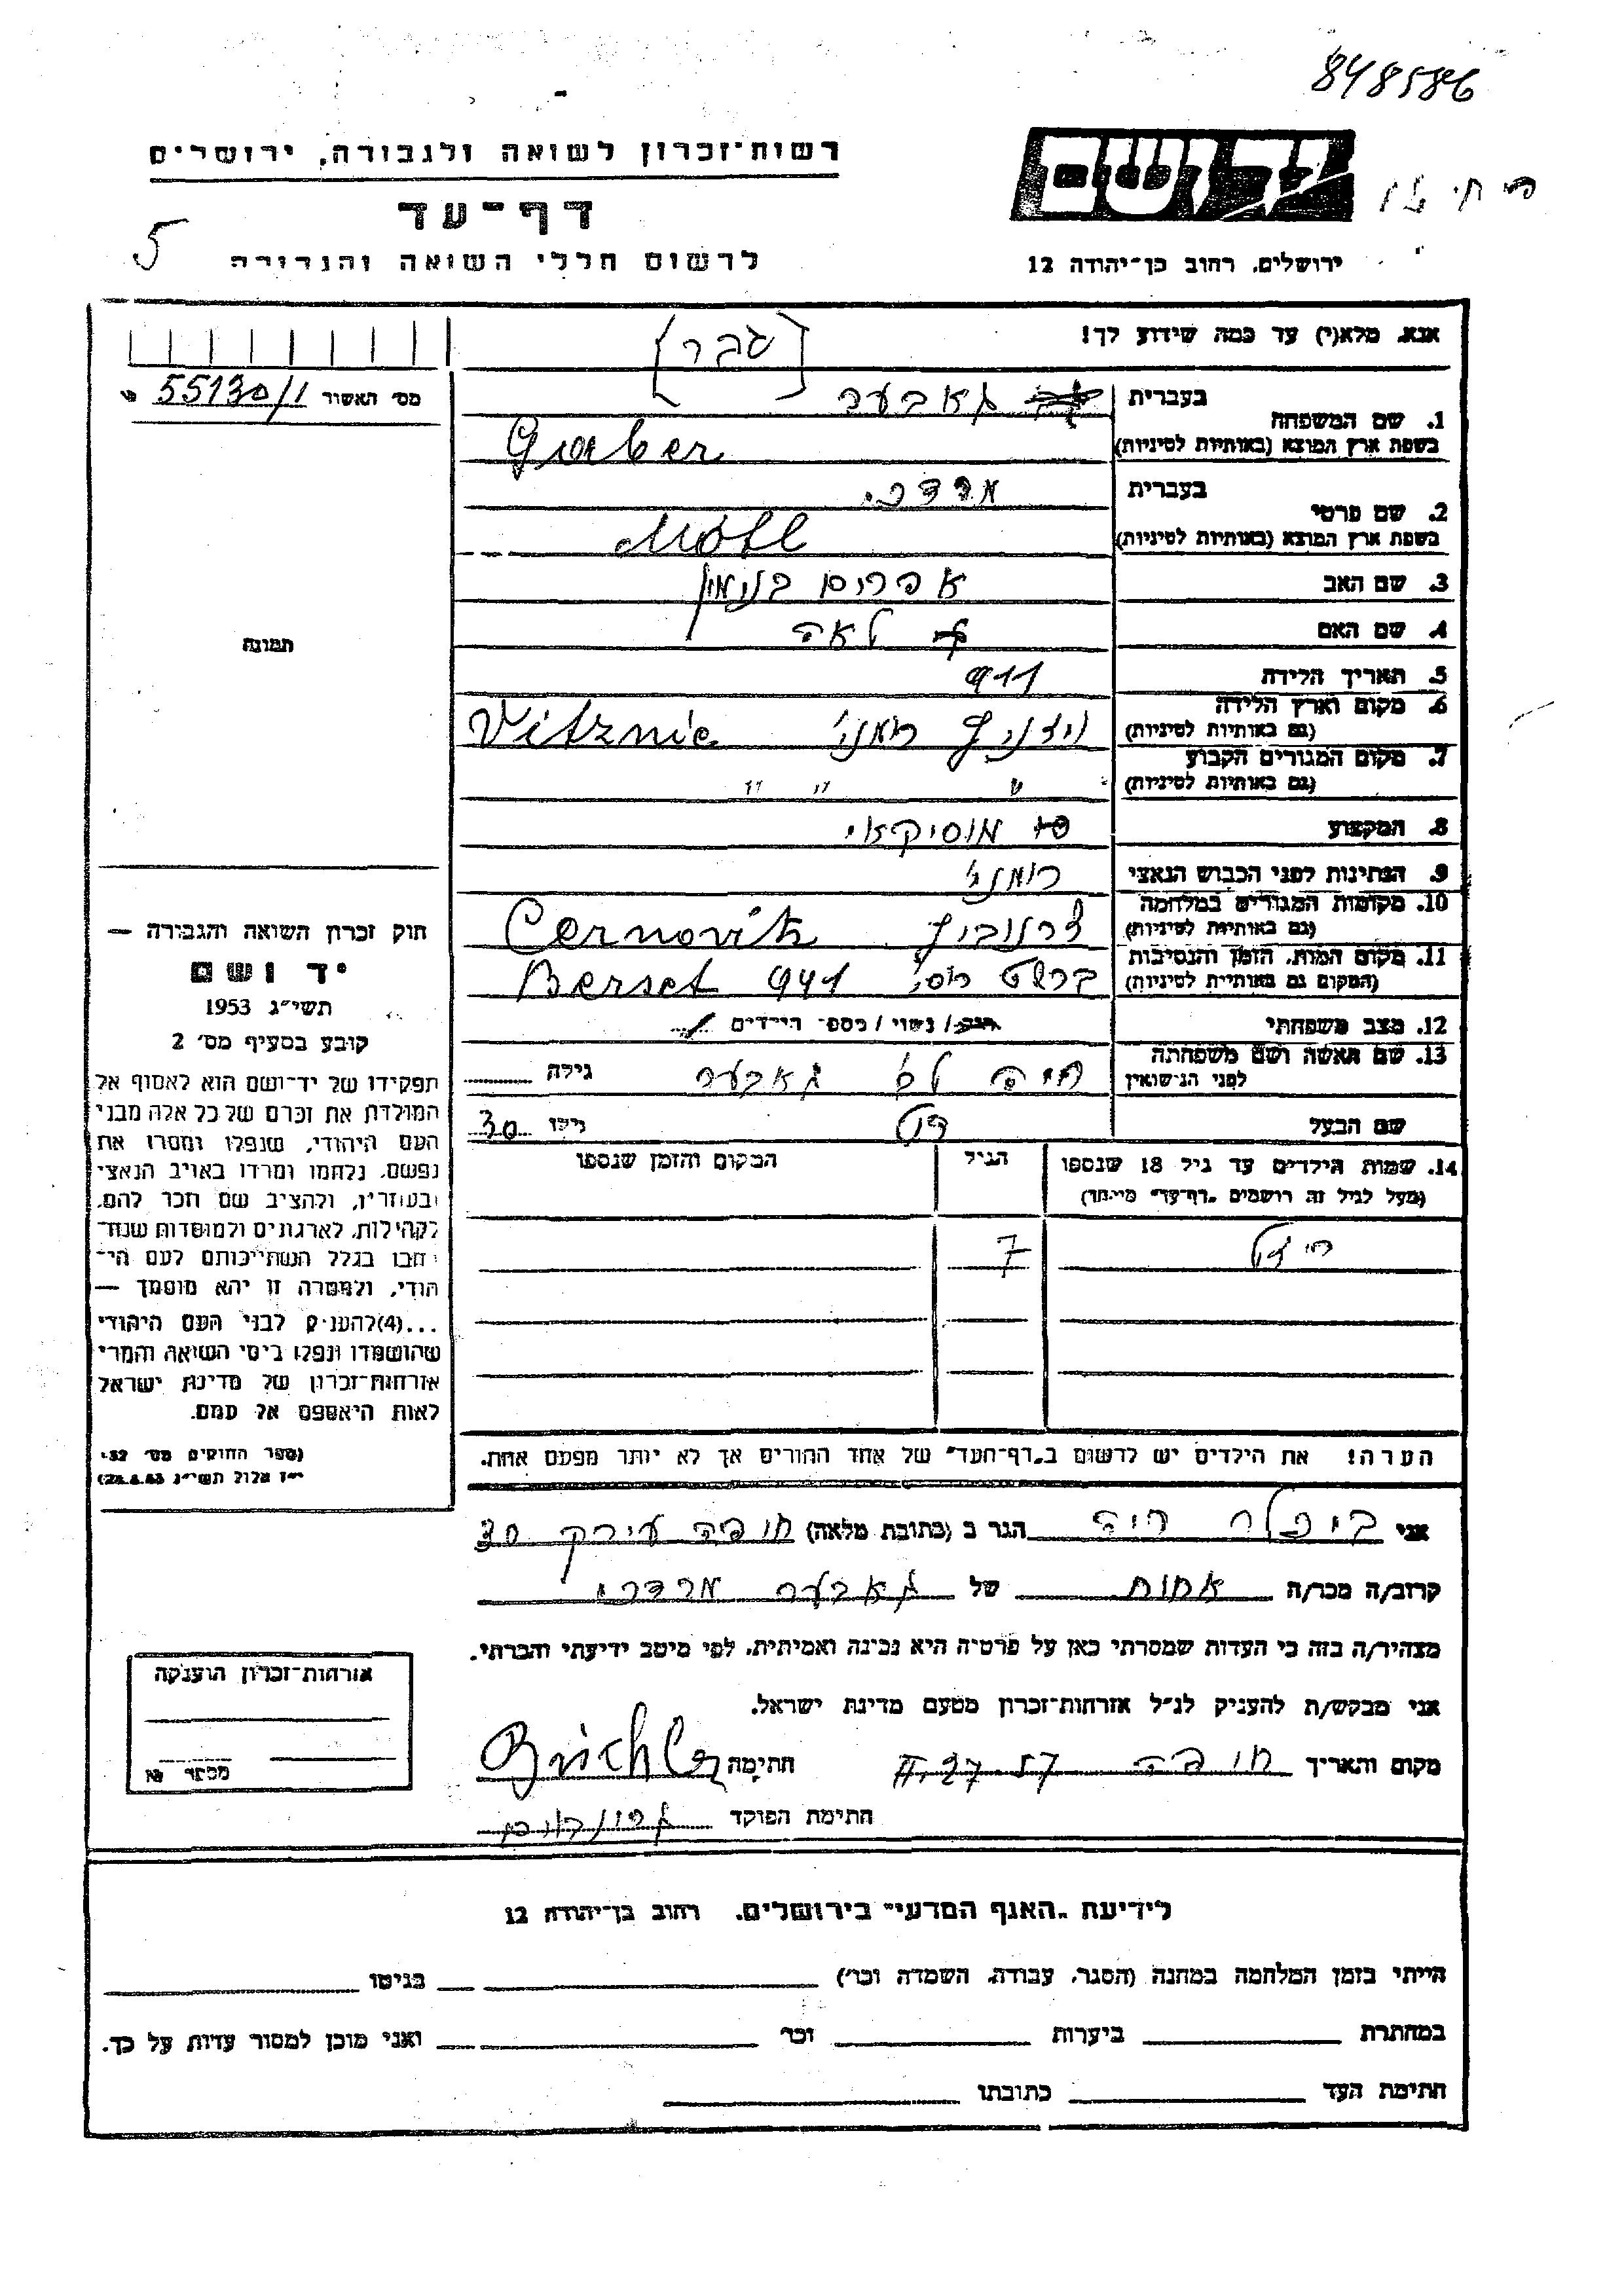 848586
רשות־זכרון לשואה ולגבורה, ירושלים
יד ושם
דף־עד
5
לרשום חללי השואה והגבורה
ירושלים, רחוב בן־יהודה 12
אנא, מלא(י) עד כמה שידוע לך!
[גבר]
מס׳ האשור 55130/1
1. שם המשפחה בעברית גאבער
בשפת ארץ המוצא (באותיות לטיניות) Graber
2. שם פרטי בעברית מרדכי
בשפת ארץ המוצא (באותיות לטיניות) Motl
3. שם האב אפרים בנימין
4. שם האם לאה
5. תאריך הלידה 911
6. מקום וארץ הלידה (גם באותיות לטיניות) ויזניץ רומני׳ Vitznic
7. מקום המגורים הקבוע (גם באותיות לטיניות) " " " "
8. המקצוע מוסיקאי
9. הנתינות לפני הכבוש הנאצי רומני׳
10. מקומות המגורים במלחמה (גם באותיות לטיניות) צרנוביץ Cernovitz
11. מקום המות, הזמן והנסיבות (המקום גם באותיות לטיניות) ברשט רוסי׳ 941 Berset
12. מצב משפחתי רוק/ נשוי / מספר הילדים
13. שם האשה ושם משפחתה לפני הנישואין חיה גאבער גילה
שם הבעל גילו 30
14. שמות הילדים עד גיל 18 שנספו (מעל לגיל זה רושמים „דף־עד" מיוחד) הגיל המקום והזמן שנספו
7
הערה! את הילדים יש לרשום ב„דף־העד" של אחד ההורים אך לא יותר מפעם אחת.
תמונה
חוק זכרון השואה והגבורה —
יד ושם
תשי״ג 1953
קובע בסעיף מס׳ 2
תפקידו של יד־ושם הוא לאסוף אל
המולדת את זכרם של כל אלה מבני
העם היהודי, שנפלו ומסרו את
נפשם, נלחמו ומרדו באויב הנאצי
ובעוזריו, ולהציב שם וזכר להם,
לקהילות, לארגונים ולמוסדות שנח־
רבו בגלל השתייכותם לעם הי־
הודי, ולמטרה זו יהא מוסמך —
...(4) להעניק לבני העם היהודי
שהושמדו ונפלו בימי השואה והמרי
אזרחות־זכרון של מדינת ישראל
לאות היאספם אל עמם.
(ספר החוקים מס׳ 132,
י״ז אלול תשי״ג 28.8.53)
אני ביכלר חיה הגר ב (כתובת מלאה) חיפה עירק 30
קרוב/ה מכר/ה אחות של גאבער מרדכי
מצהיר/ה בזה כי העדות שמסרתי כאן על פרטיה היא נכונה ואמיתית, לפי מיטב ידיעתי והכרתי.
אני מבקש/ת להעניק לנ״ל אזרחות־זכרון מטעם מדינת ישראל.
מקום ותאריך חיפה 57 .27.II חתימה Bichler
חתימת הפוקד
אזרחות־זכרון הוענקה
מספר №
לידיעת „האגף המדעי" בירושלים, רחוב בן־יהודה 12
הייתי בזמן המלחמה במחנה (הסגר, עבודה, השמדה וכו׳) בגיטו
במחתרת ביערות וכו׳ ואני מוכן למסור עדות על כך.
חתימת העד כתובתו